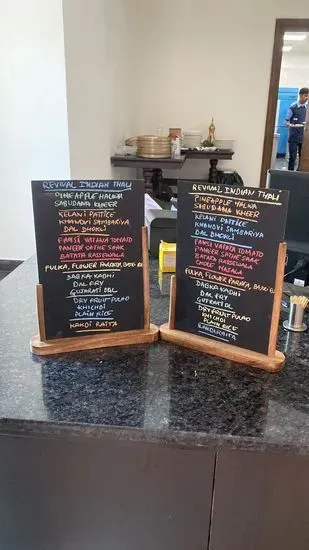 REVIVAL INDIAN THALI
PINEAPPLE HALWA
SABUDANA KHEER
KELANI PATTICE
KHANDVI SAMBARIYA
DAL DHOKLI
FANSI VATANA TOMATO
PANEER METHI SAAK
BATATA RASSEWALA
PULKA, FLOWER PARATA,
DABKA KADHI
DAL FRY
GUJRATI DAL
DRY FRUIT PULAO
KHICHDI
PLAIN RICE
KAKDI RAITA
REVIVAL INDIAN THALI
PINEAPPLE HALWA
SABUDANA KHEER
KELANI PATTICE
KHANDVI SAMBARIYA
DAL DHOKLI
FANSI VATANA TOMATO
PANEER METHI SAAK
BATATA RASSEWALA
CHOLE MASALA
PULKA, FLOWER PARATA,
DABKA KADHI
DAL FRY
GUJRATI DAL
DRY FRUIT PULAO
KHICHDI
PLAIN RICE